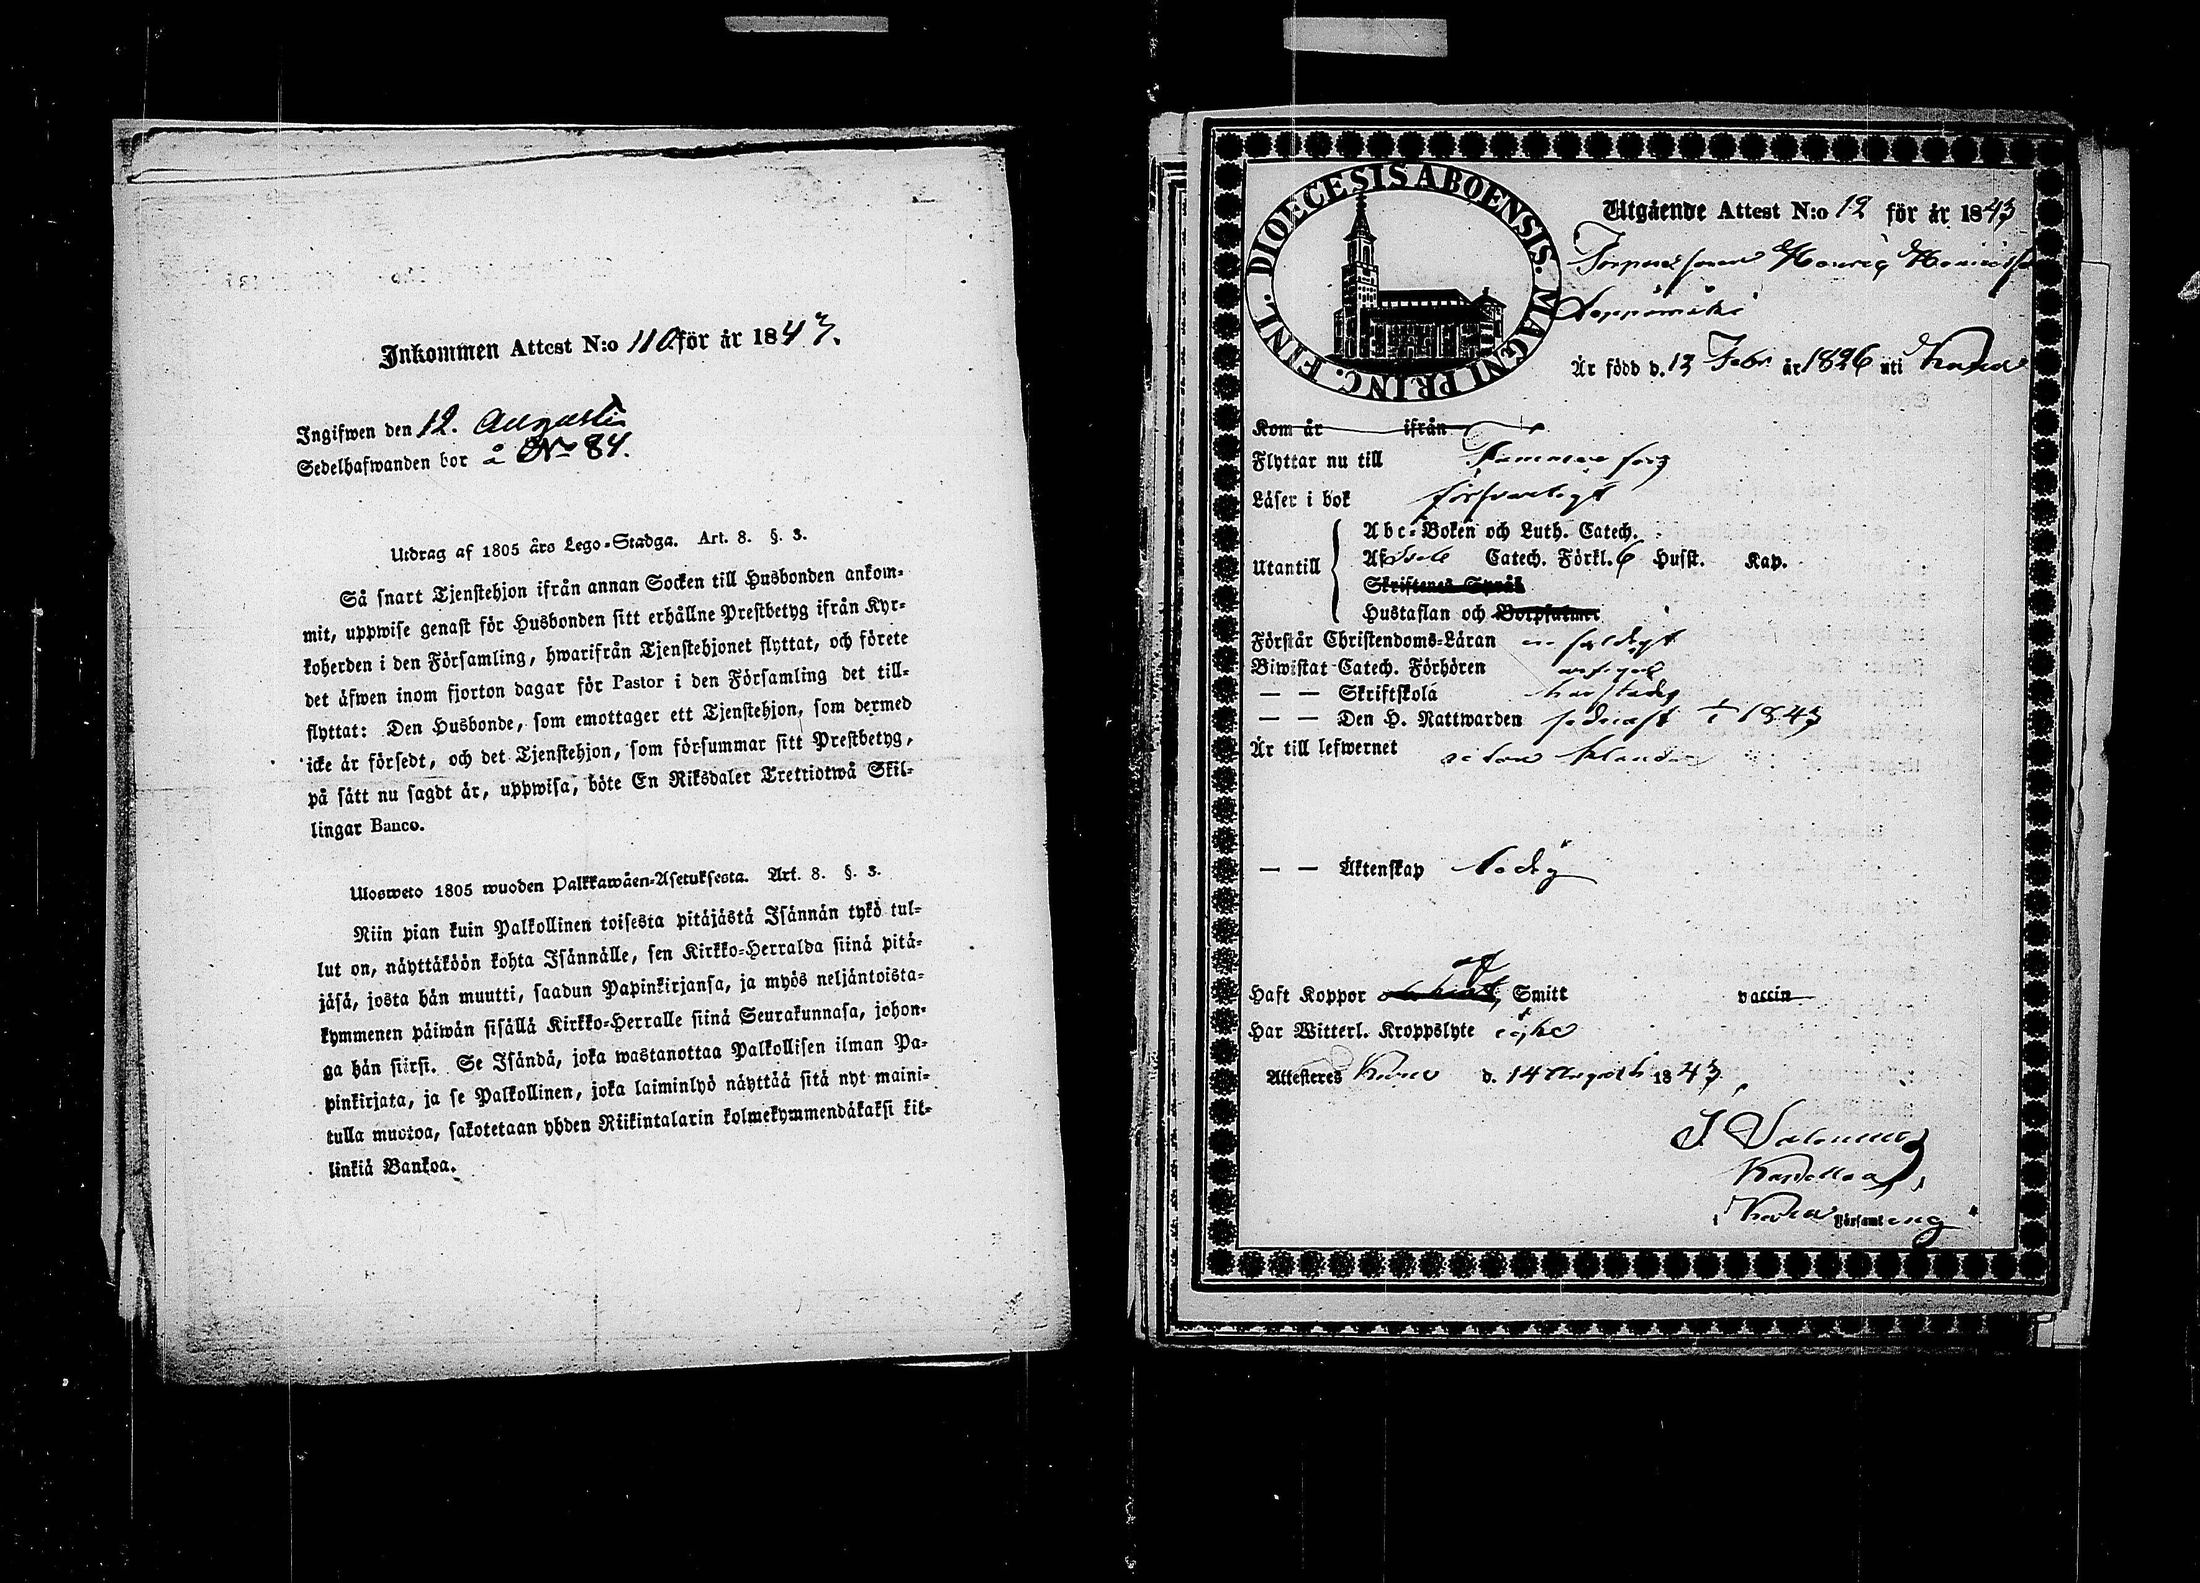 Inkommen Attest N:o 110 för år 1843.
Ingifwen den 12. Augusti
Sedelhafwanden bor å No 84.
Utdrag af 1805 års Lego-Stadga. Art. 8. §. 3.
Så snart Tjenstehjon ifrån annan Socken till Husbonden ankom-
mit, uppwise genast för Husbonden sitt erhållne Prestbetyg ifrån Kyr-
koherden i den Församling, hwarifrån Tjenstehjonet flyttat, och förete
det äfwen inom fjorton dagar för Pastor i den Församling det till-
flyttat: Den Husbonde, som emottager ett Tjenstehjon, som dermed
icke är försedt, och det Tjenstehjon, som försummar sitt Prestbetyg,
på sätt nu sagdt är, uppwisa, böte En Riksdaler Trettiotwå Skil-
lingar Banco.
Ulosweto 1805 wuoden Palkkawäen-Asetuksesta. Art. 8. §. 3.
Niin pian kuin Palkollinen toisesta pitäjästä Isännän tykö tul-
lut on, näyttäköön kohta Isännälle, sen Kirkko-Herralda siinä pitä-
jäsä, josta hän muutti, saadun Papinkirjansa, ja myös neljäntoista-
kymmenen päiwän sisällä Kirkko-Herralle siinä Seurakunnasa, johon-
ga hän siirsi. Se Isändä, joka wastanottaa Palkollisen ilman Pa-
pinkirjata, ja se Palkollinen, joka laiminlyö näyttää sitä nyt maini-
tulla muotoa, sakotetaan yhden Riikintalarin kolmekymmendäkaksi kil-
linkiä Bankoa.
DIOECESIS ABOENSIS. MAGNI PRINC. FINL.
Utgående Attest N:o 12 för år 1843
Henric
Är född d. 13 Febr. år 1826 uti
Kom år ifrån
Flyttar nu till
Läser i bok försvarligt
Utantill
Abc-Boken och Luth. Catech.
Af Catech. Förkl. 6 Husst. Kap.
Skriftenes Språk
Hustaflan och Botpsalmer
Förstår Christendoms-Läran enfaldigt
Biwistat Catech. Förhören
— — Skriftskola
— — Den H. Nattwarden sednast 1843
Är till lefwernet utan klander
— — Äktenskap ledig
Haft Koppor Smitt vaccin
Har Witterl. Kroppslyte ejhe
Attesteres d. 14 Augusti 1843
J.
Kapellan
i Församling